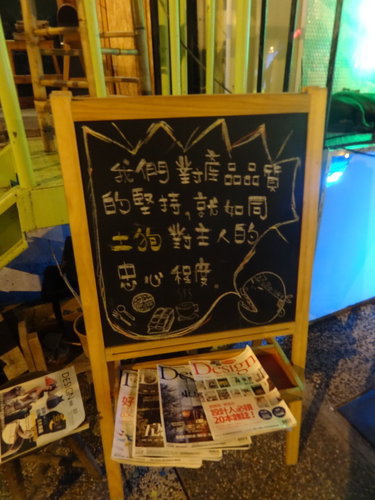 我們對產品品質
的堅持,就如同
土狗對主人的
忠心程度。
Design
設計人必讀
20本雜誌!
DESIGN